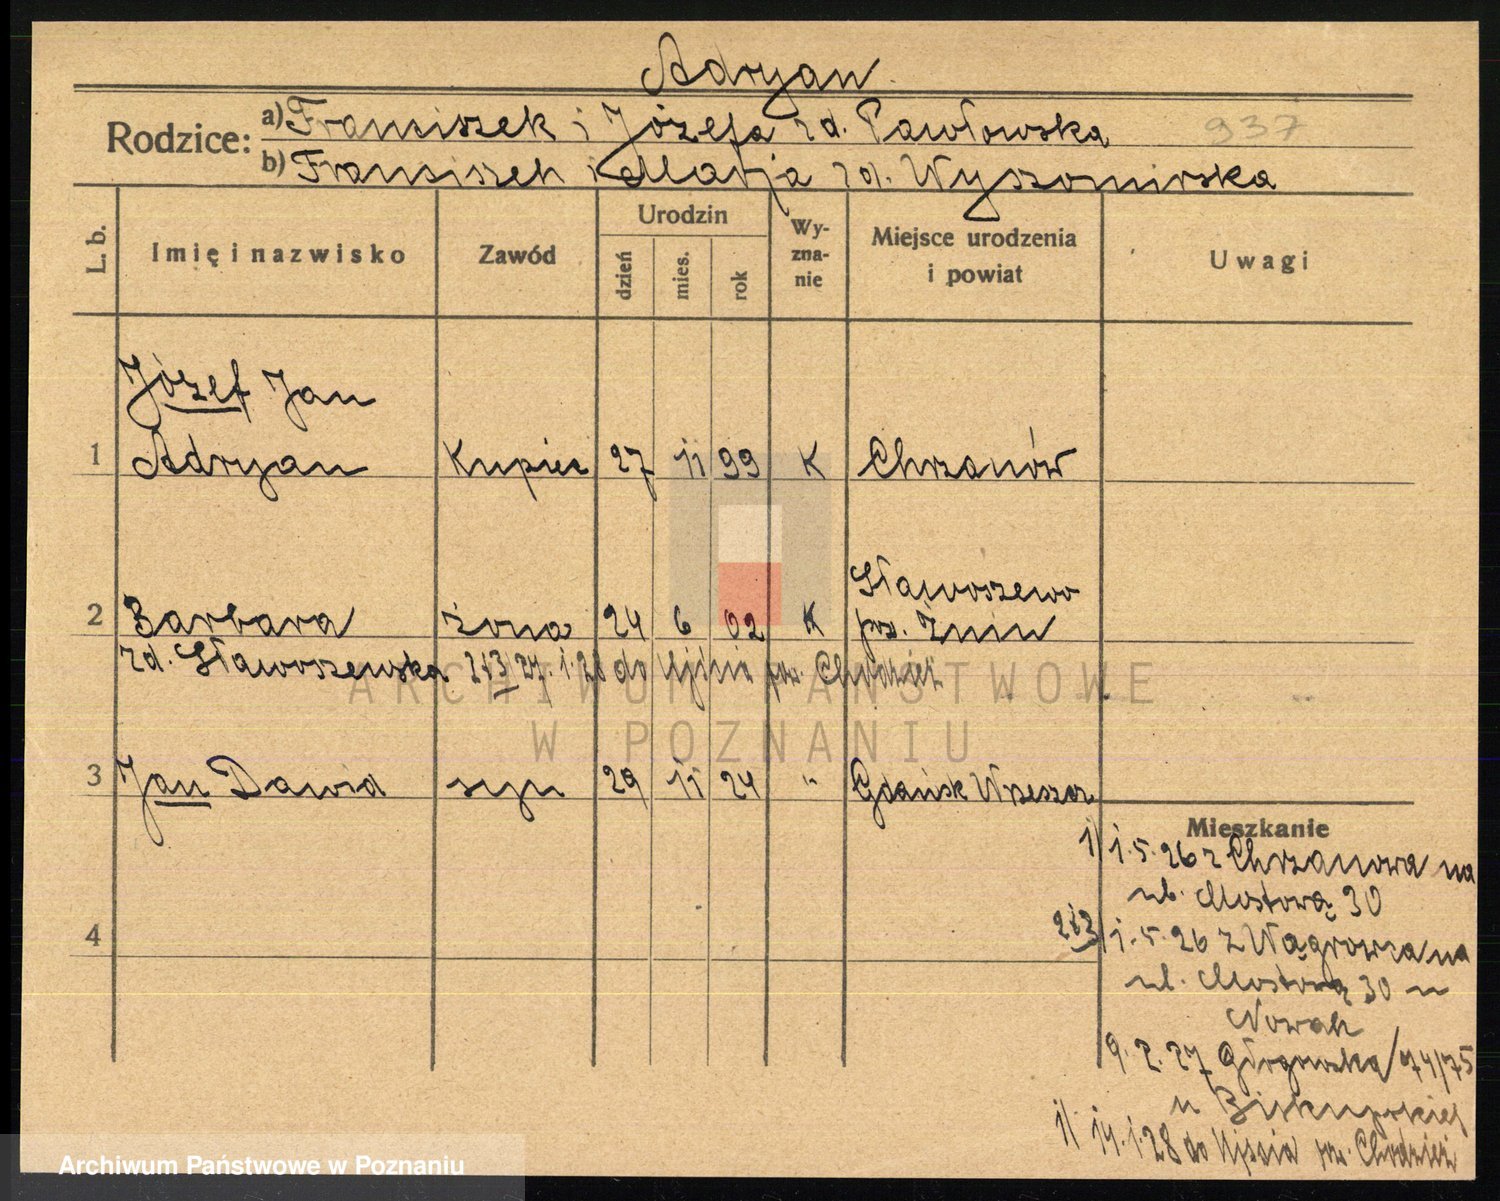 Adryan
Rodzice: a) Franciszek i Józefa zd. Pawłowska 937
b) Franciszek i Marja zd. Wyszomirska
L. b. Imię i nazwisko Zawód Urodzin dzień mies. rok Wyznanie Miejsce urodzenia i powiat Uwagi
Józef Jan
1 Adryan Kupiec 27 11 99 K Chrzanów
Sławoszewo
2 Barbara żona 24 6 02 K pow. Żnin
zd. Sławoszewska 2i3 27.1.28 do Ujścia pow. Chodzież
ARCHIWUM PAŃSTWOWE
W POZNANIU
3 Jan Dawid syn 29 11 24 " Gdańsk Wrzeszcz
Mieszkanie
1) 1.5.26 z Chrzanowa na
ul. Mostową 30
4
2i3) 1.5.26 z Wągrowca na
ul. Mostową 30 u
Nowak
9.2.27 Głogowska 74/75
u Biskupskiej
1) 14.1.28 do Ujścia pow. Chodzież
Archiwum Państwowe w Poznaniu